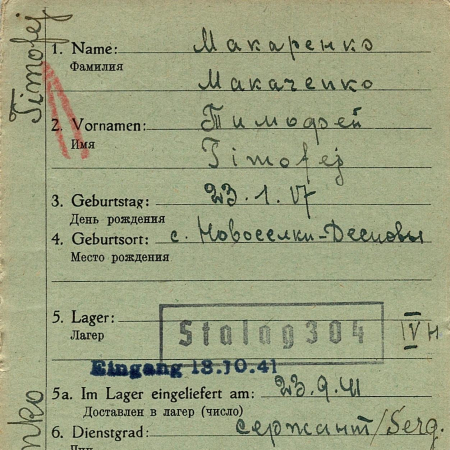 Timofej
1. Name: Макаренко
Фамилия
Макаченко
2. Vornamen: Тимофей
Имя
Timofej
3. Geburtstag: 23.1.17
День рождения
4. Geburtsort: с. Новоселки-
Место рождения
5. Lager: Stalag 304 IV H
Лагер
Eingang 18.10.41
5a. Im Lager eingeliefert am: 23.9.41
Доставлен в лагер (число)
6. Dienstgrad: сержант/Serg.
nko